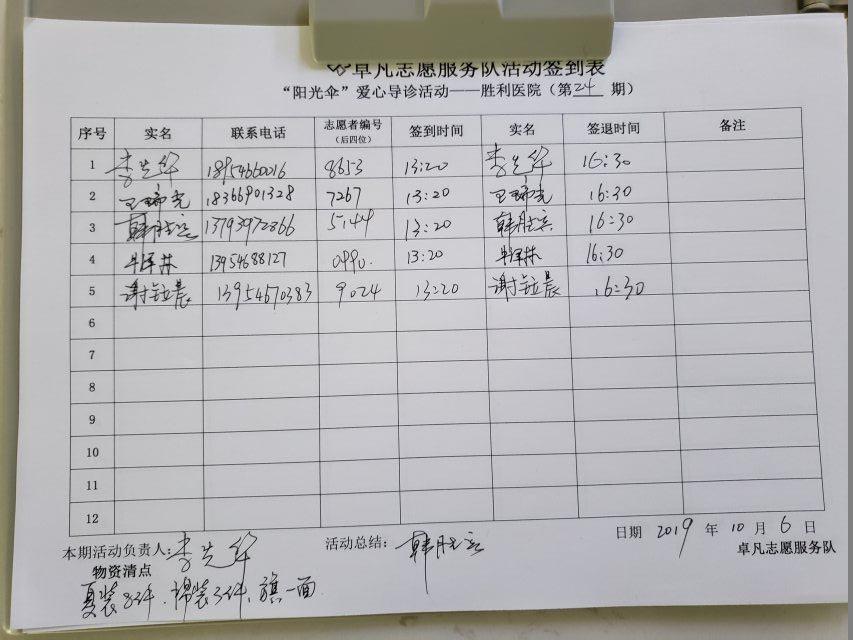 卓凡志愿服务队活动签到表
“阳光伞”爱心导诊活动——胜利医院（第24期）
序号 实名 联系电话 志愿者编号（后四位） 签到时间 实名 签退时间 备注
1 李先华 18954660016 8653 13:20 李先华 16:30
2 18366901328 7267 13:20 16:30
3 13793972866 5144 13:20 16:30
4 牛泽林 13954688127 0990. 13:20 牛泽林 16:30
5 13954670383 9024 13:20 16:30
6
7
8
9
10
11
12
日期 2019 年 10 月 6 日
本期活动负责人：李先华 活动总结：
卓凡志愿服务队
物资清点
夏装8件、棉装3件、旗一面